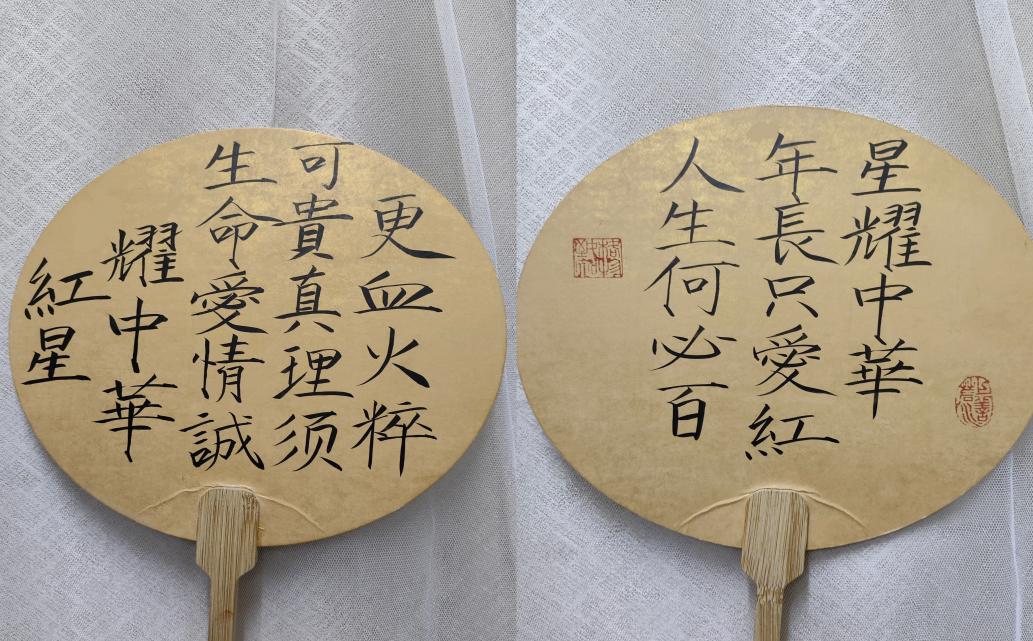 紅星
耀中華
生命愛情誠
可貴真理须
更血火粹
人生何必百
年長只愛紅
星耀中華
上善若水